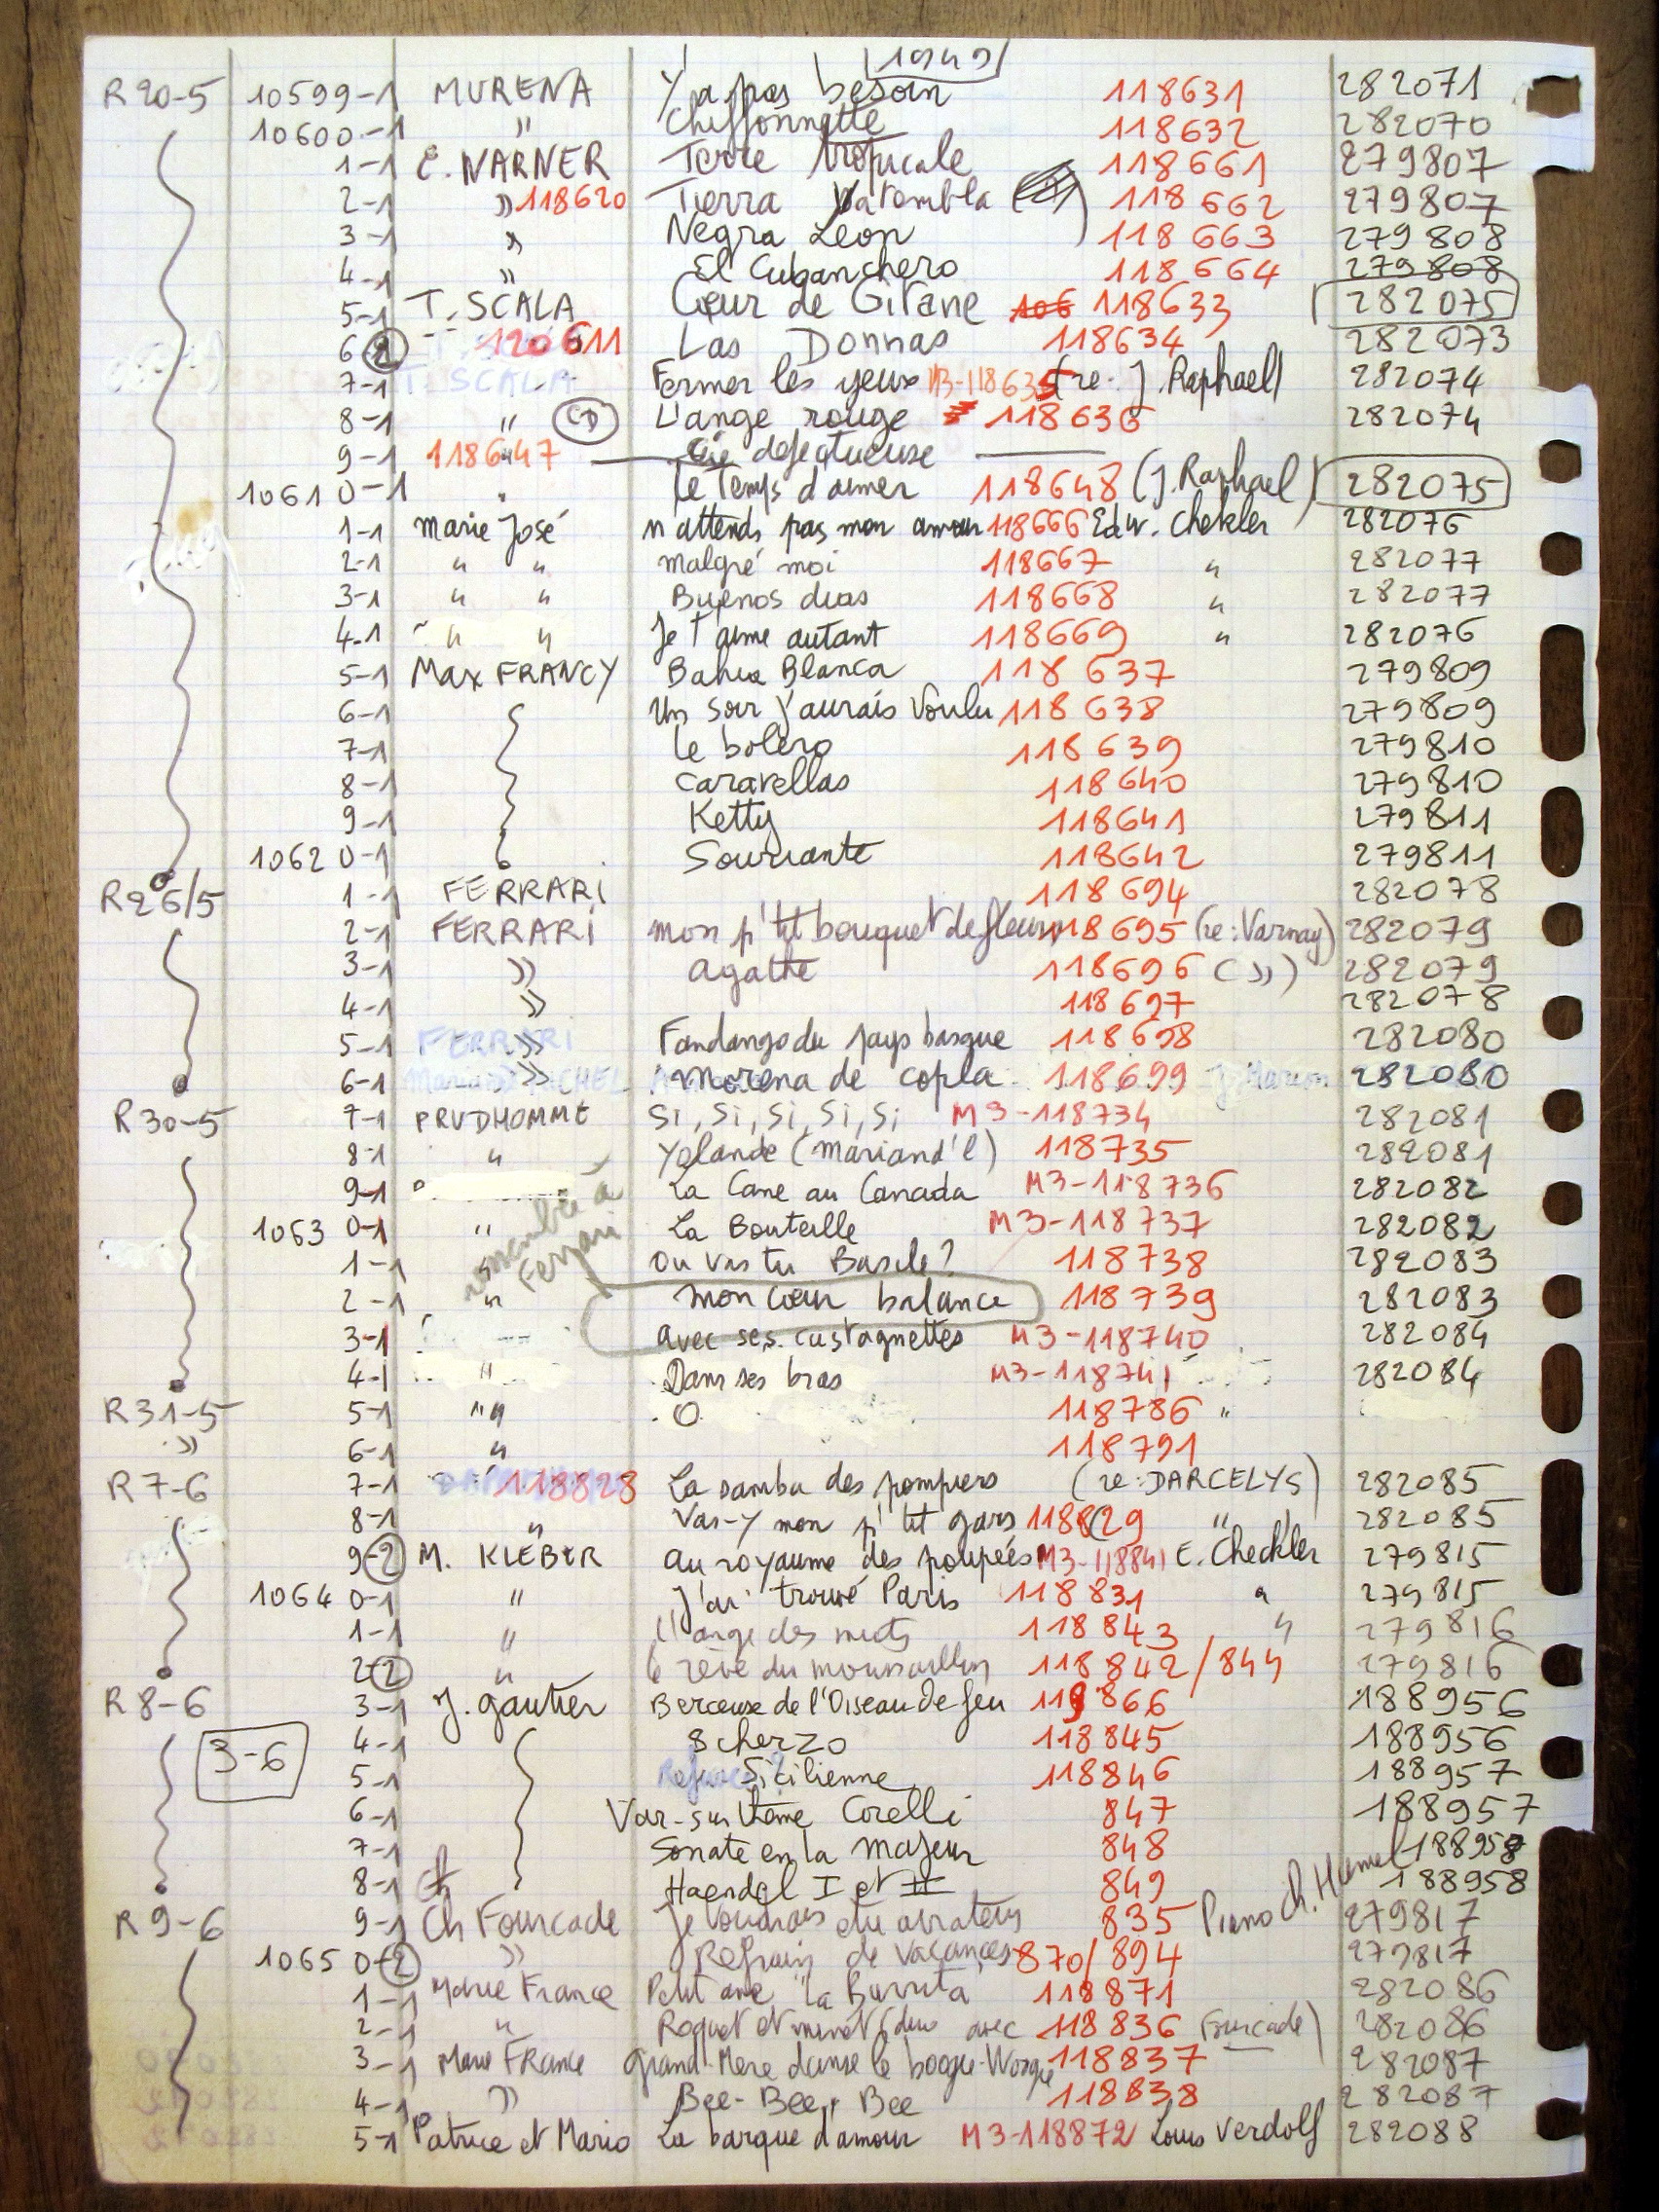 1949
R 20-5 10599-1 MURENA Y'a pas besoin 118631 282071
10600-1 " Chiffonnette 118632 282070
1-1 E. WARNER Terre tropicale 118661 279807
2-1 " 118620 Tierra Va tembla 118662 279807
3-1 " Negra Leon 118663 279808
4-1 " El Cubanchero 118664 279808
5-1 T. SCALA Cœur de Gitane 106 118633 282075
6 2 120611 Las Donnas 118634 282073
7-1 T. SCALA Fermer les yeux 118635 (re- J. Raphael) 282074
8-1 " CD L'ange rouge 118636 282074
9-1 118647 cire defectueuse
10610-1 " Le temps d'aimer 118648 (J. Raphael) 282075
1-1 Marie José n'attends pas mon amour 118666 Edw. Chekler 282076
2-1 " " malgré moi 118667 " 282077
3-1 " " Buenos dias 118668 " 282077
4-1 " " Je t'aime autant 118669 " 282076
5-1 Max FRANCY Bahia Blanca 118637 279809
6-1 Un soir j'aurais voulu 118638 279809
7-1 Le boléro 118639 279810
8-1 caravellas 118640 279810
9-1 Ketty 118641 279811
10620-1 Souriante 118642 279811
R26/5 1-1 FERRARI 118694 282078
2-1 FERRARI mon p'tit bouquet de fleurs 118695 (re: Varnay) 282079
3-1 " agathe 118696 ( " ) 282079
4-1 " 118697 282078
5-1 FERRARI " Fandango du pays basque 118698 282080
6-1 " Morena de copla 118699 J. Marion 282080
R30-5 7-1 PRUDHOMME Si, Si, Si, Si, Si M3-118734 282081
8-1 " Yolande (Mariand'l) 118735 282081
9-1 La Cane au Canada M3-118736 282082
10630-1 " La Bouteille M3-118737 282082
1-1 " Ou vas tu Basile? 118738 282083
2-1 " mon cœur balance 118739 282083
3-1 avec ses castagnettes M3-118740 282084
4-1 " Dans ses bras M3-118741 282084
à Ferrari
R31-5 5-1 " " O 118786 "
" 6-1 " 118791
R7-6 7-1 118828 La samba des pompiers (re: DARCELYS) 282085
8-1 " Vas-y mon p'tit gars 118829 ( " ) 282085
9-2 M. KLEBER au royaume des poupées M3-118841 E. Checkler 279815
10640-1 " J'ai trouvé Paris 118831 " 279815
1-1 " L'ange des nuits 118843 " 279816
2 2 " le rêve du moussaillon 118842/844 279816
R8-6 3-1 J. Gautier Berceuse de l'Oiseau de feu 118866 188956
3-6 4-1 Scherzo 118845 188956
5-1 Sicilienne 118846 188957
6-1 Var-sur thème Corelli 847 188957
7-1 Sonate en la Majeur 848 188957
8-1 Haendel I et II 849 Piano Ch. Hamel 188958
R9-6 9-1 Ch Fourcade Je voudrais etre aviateur 835 279817
10650-2 " Refrain de vacances 870/894 279817
1-1 Marie France Petit ane "la Burrita" 118871 282086
2-1 " Roquet et minet (duo avec 118836 Fourcade) 282086
3-1 Marie France Grand-Mere danse le boogie-Woogie 118837 282087
4-1 " Bee-Bee, Bee 118838 282087
5-1 Patrice et Mario La barque d'amour M3-118872 Louis Verdolf 282088